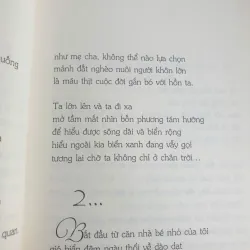 uống
như mẹ cha, không thể nào lựa chọn
mảnh đất nghèo nuôi người khôn lớn
là máu thịt cuộc đời gắn bó với hồn ta.
Ta lớn lên và ta đi xa
mở tầm mắt nhìn bốn phương tám hướng
để hiểu được sông dài và biển rộng
hiểu ngoài kia biển xanh đang vẫy gọi
tương lai chờ ta không chỉ ở chân trời...
2...
Bắt đầu từ căn nhà bé nhỏ của tôi
gió biển đêm ngày thổi về dào dạt
quan